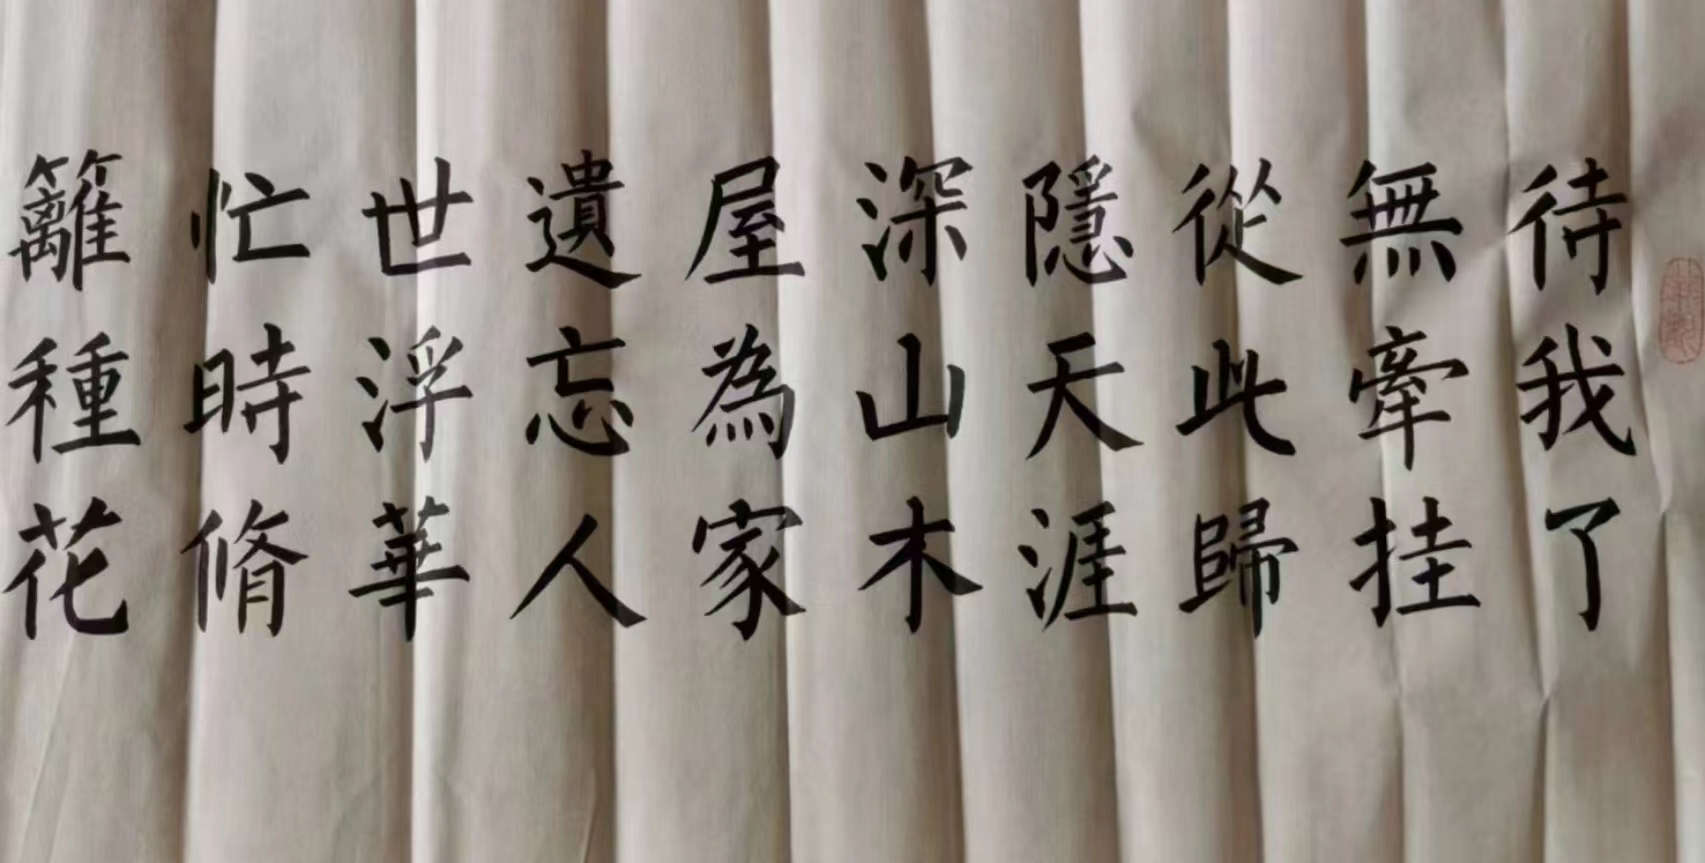 待我了
無牽挂
從此歸
隱天涯
深山木
屋為家
遺忘人
世浮華
忙時脩
籬種花